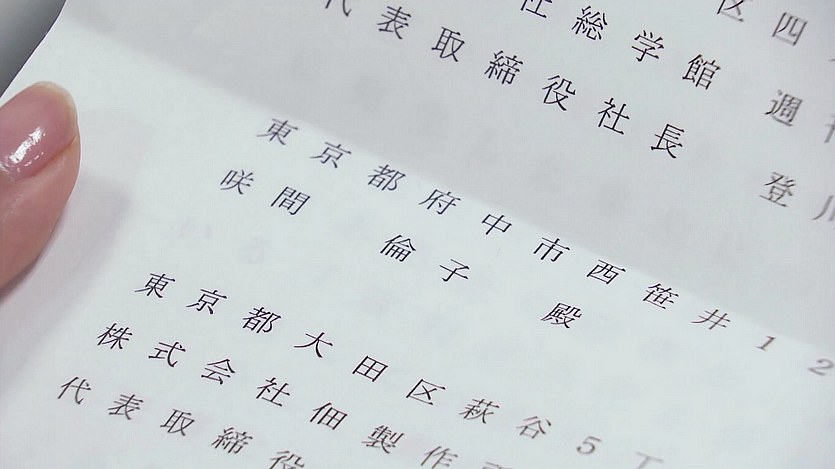 区四
社総学館 週刊
代表取締役社長 登川
東京都府中市西笹井12
咲間 倫子 殿
東京都大田区萩谷5丁
株式会社佃製作
代表取締役